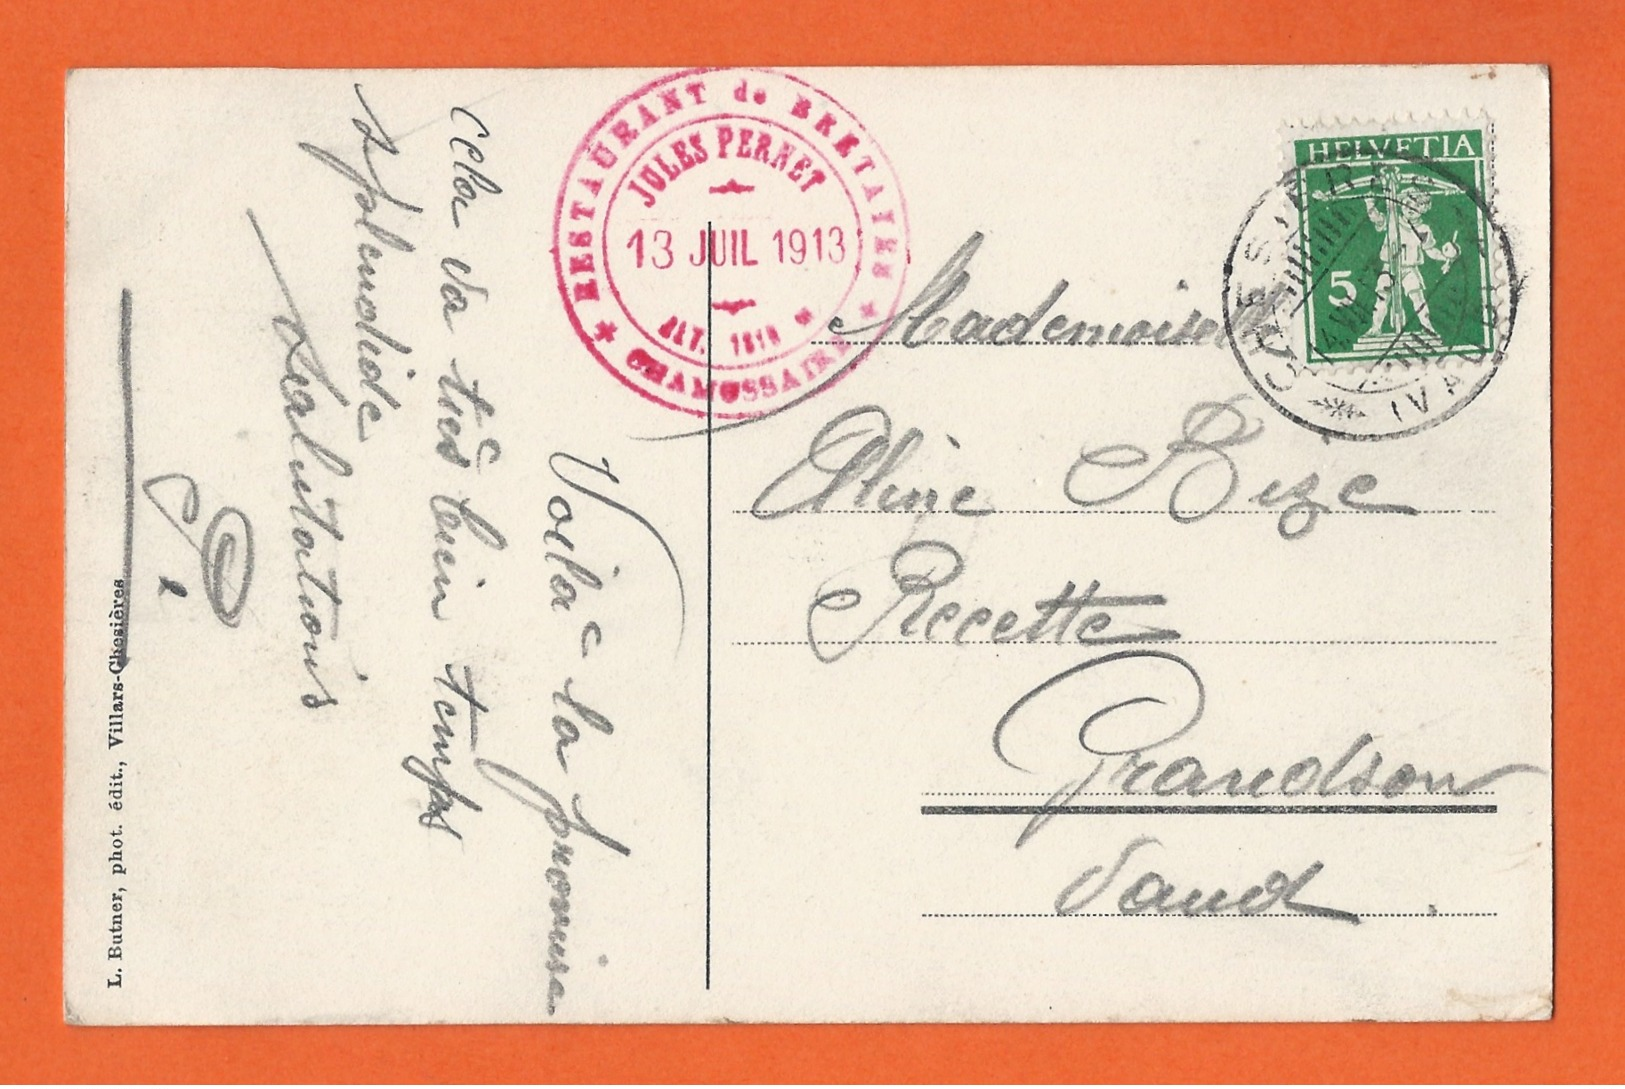 RESTAURANT de BRETAYES
JULES PERNET
13 JUIL 1913
ALT.
* CHAMOSSAIRE *
HELVETIA
5
CHESIÈRES
(VAUD)
Mademoiselle
Aline Bize
Recette
Grandson
Vaud.
Voila la promise
cela va très bein temps
splendide
Salutations
L. Butner, phot. édit., Villars-Chesières